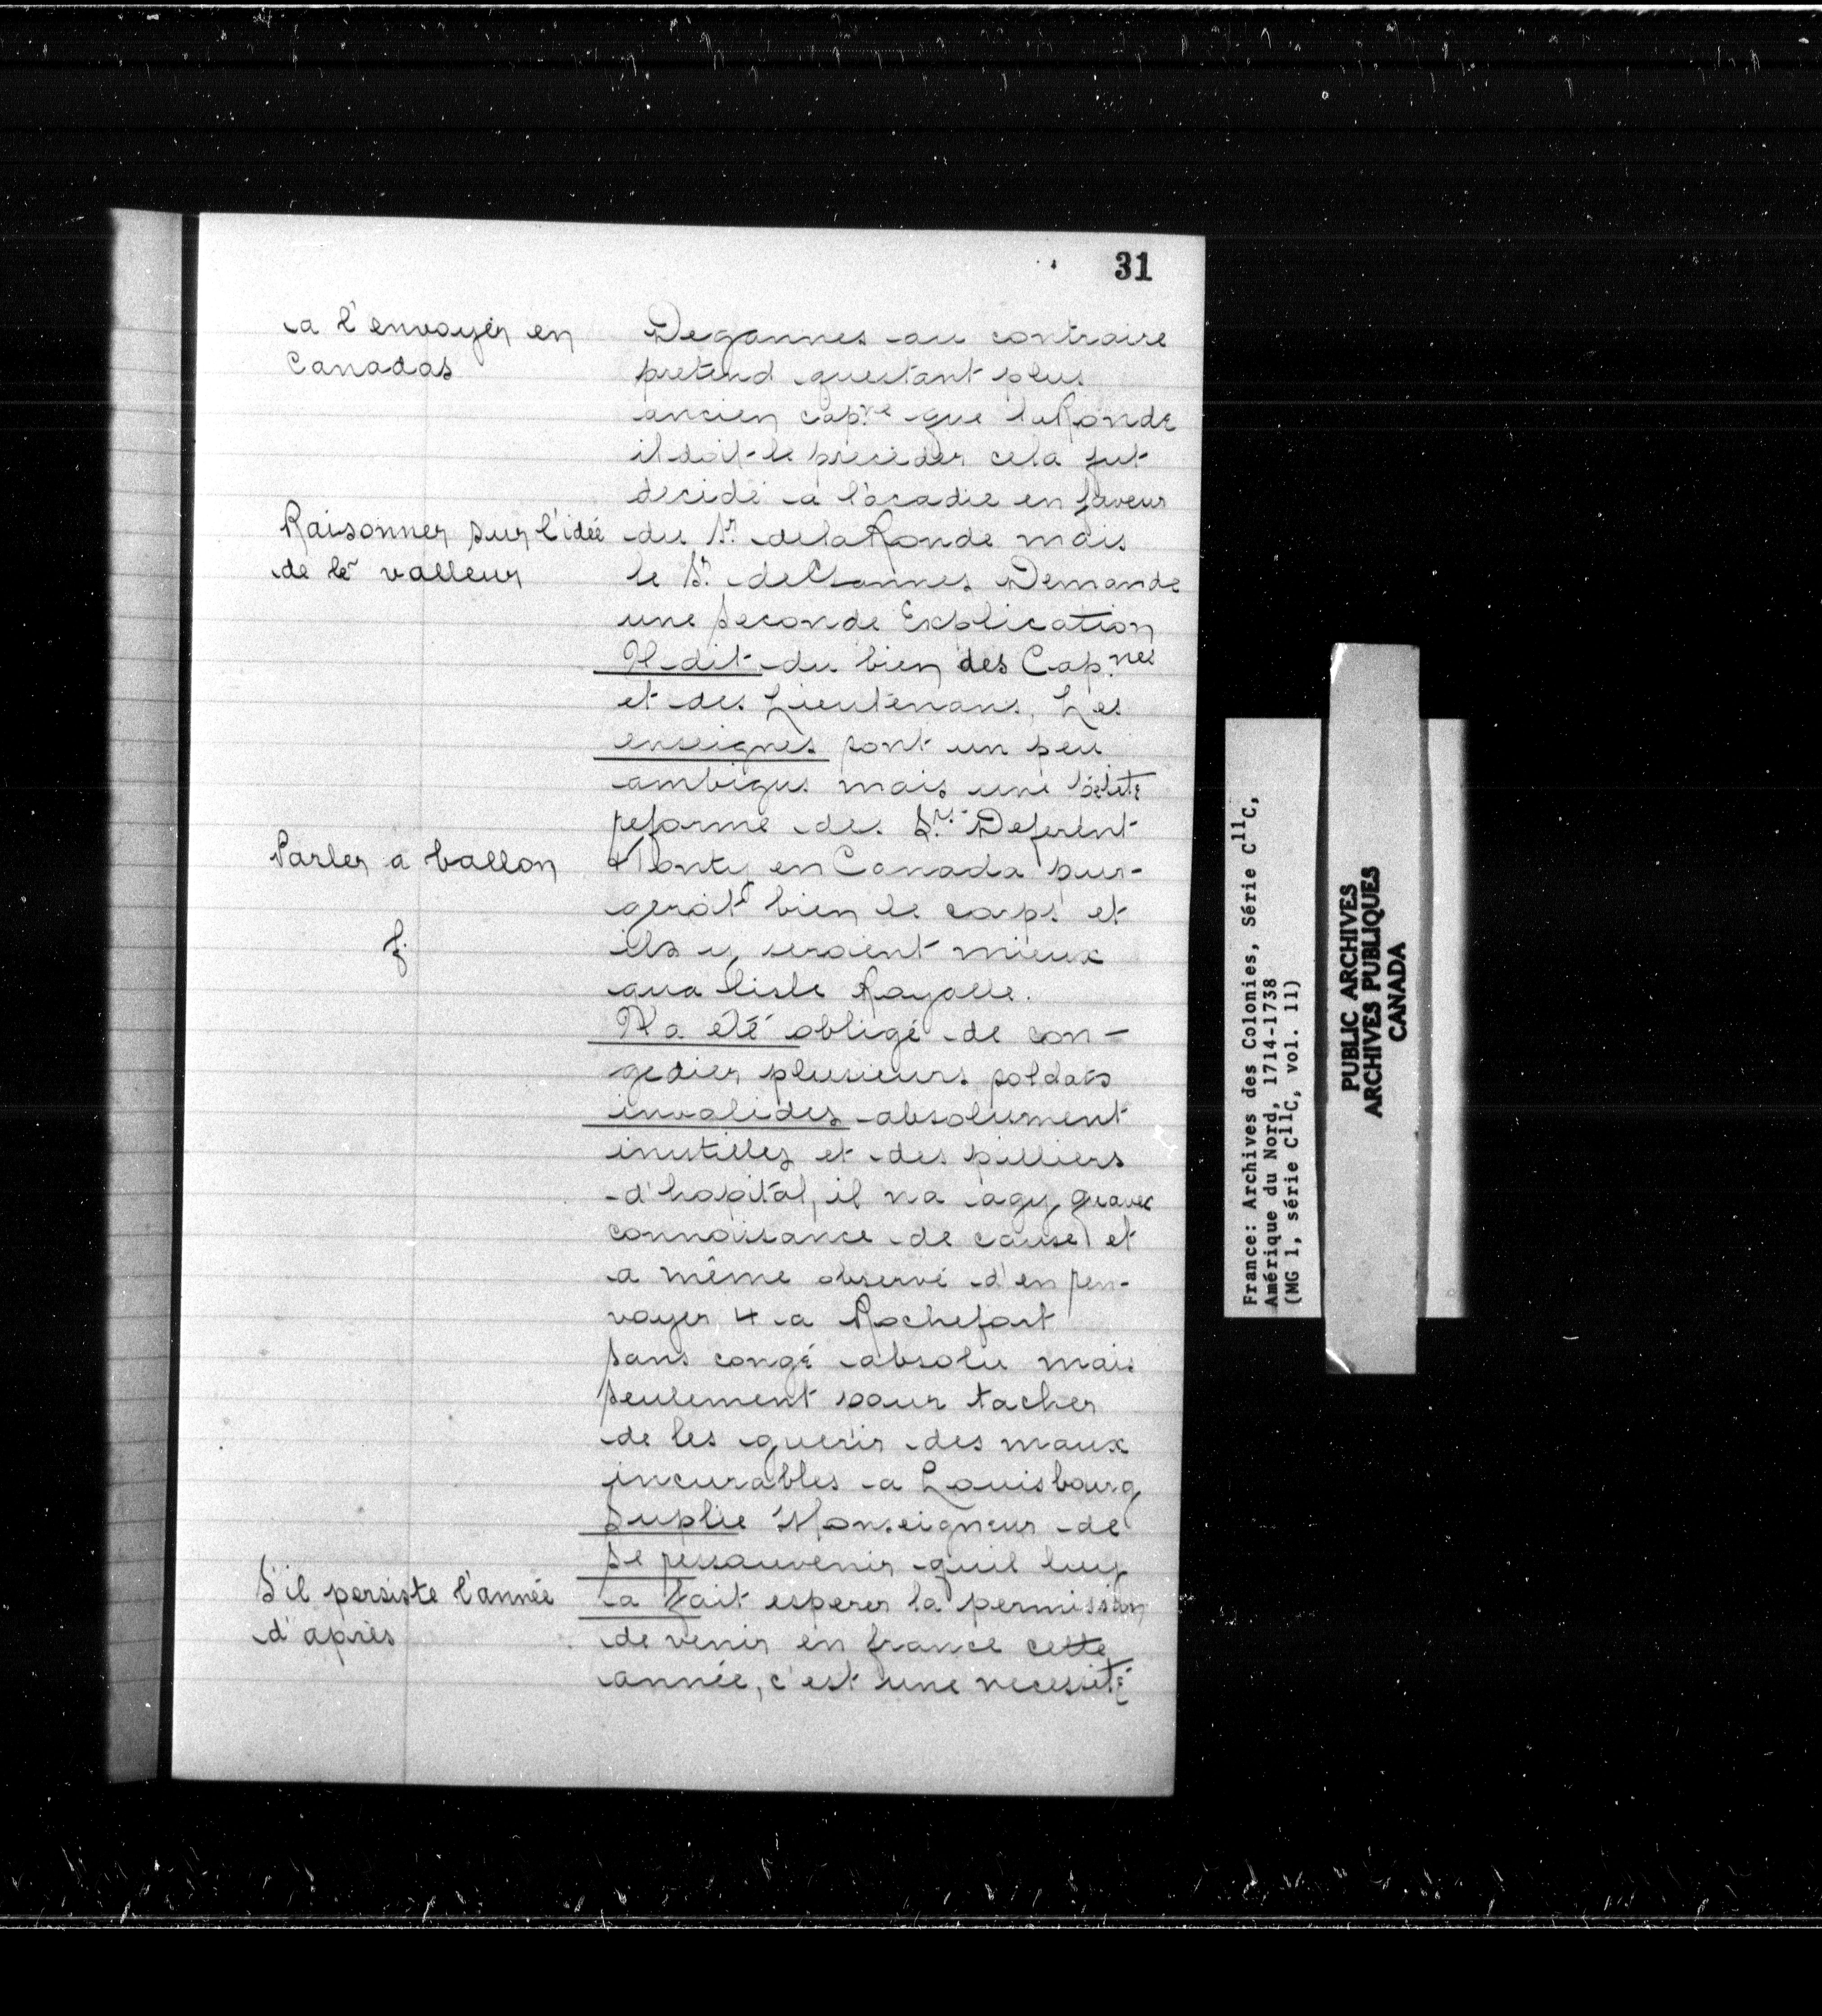 31
a l'envoyer en
Canadas
Raisonner sur l'idée
de le valleur
Parler a ballon
f.
S'il persiste l'année
d'après
Degannes au contraire
pretend quetant plus
ancien capne que laRonde
il doit le preceder cela fut
decidé a l'acadie en faveur
du Sr. delaRonde mais
le Sr. deGannes Demande
une seconde Explication
Il dit du bien des Capnes
et des Lieutenans, Les
enseignes sont un peu
ambigus mais une petite
reforme des Srs. Deferent
Monty en Canada pur-
geroit bien le corps et
ils y seroient mieux
qua lisle Royalle.
Il a été obligé de con-
gedier plusieurs soldats
invalides absolument
inutilles et des pilliers
d'hopital, il na agy quavec
connoissance de cause et
a même observé d'en ren-
voyer 4 a Rochefort
sans congé absolu mais
seulement pour tacher
de les guerir des maux
incurables a Louisbourg
Suplie Monseigneur de
se ressouvenir quil luy
a fait esperer la permission
de venir en france cette
année, c'est une necessité
France: Archives des Colonies, Série C11C,
Amérique du Nord, 1714-1738
(MG 1, série C11C, vol. 11)
PUBLIC ARCHIVES
ARCHIVES PUBLIQUES
CANADA